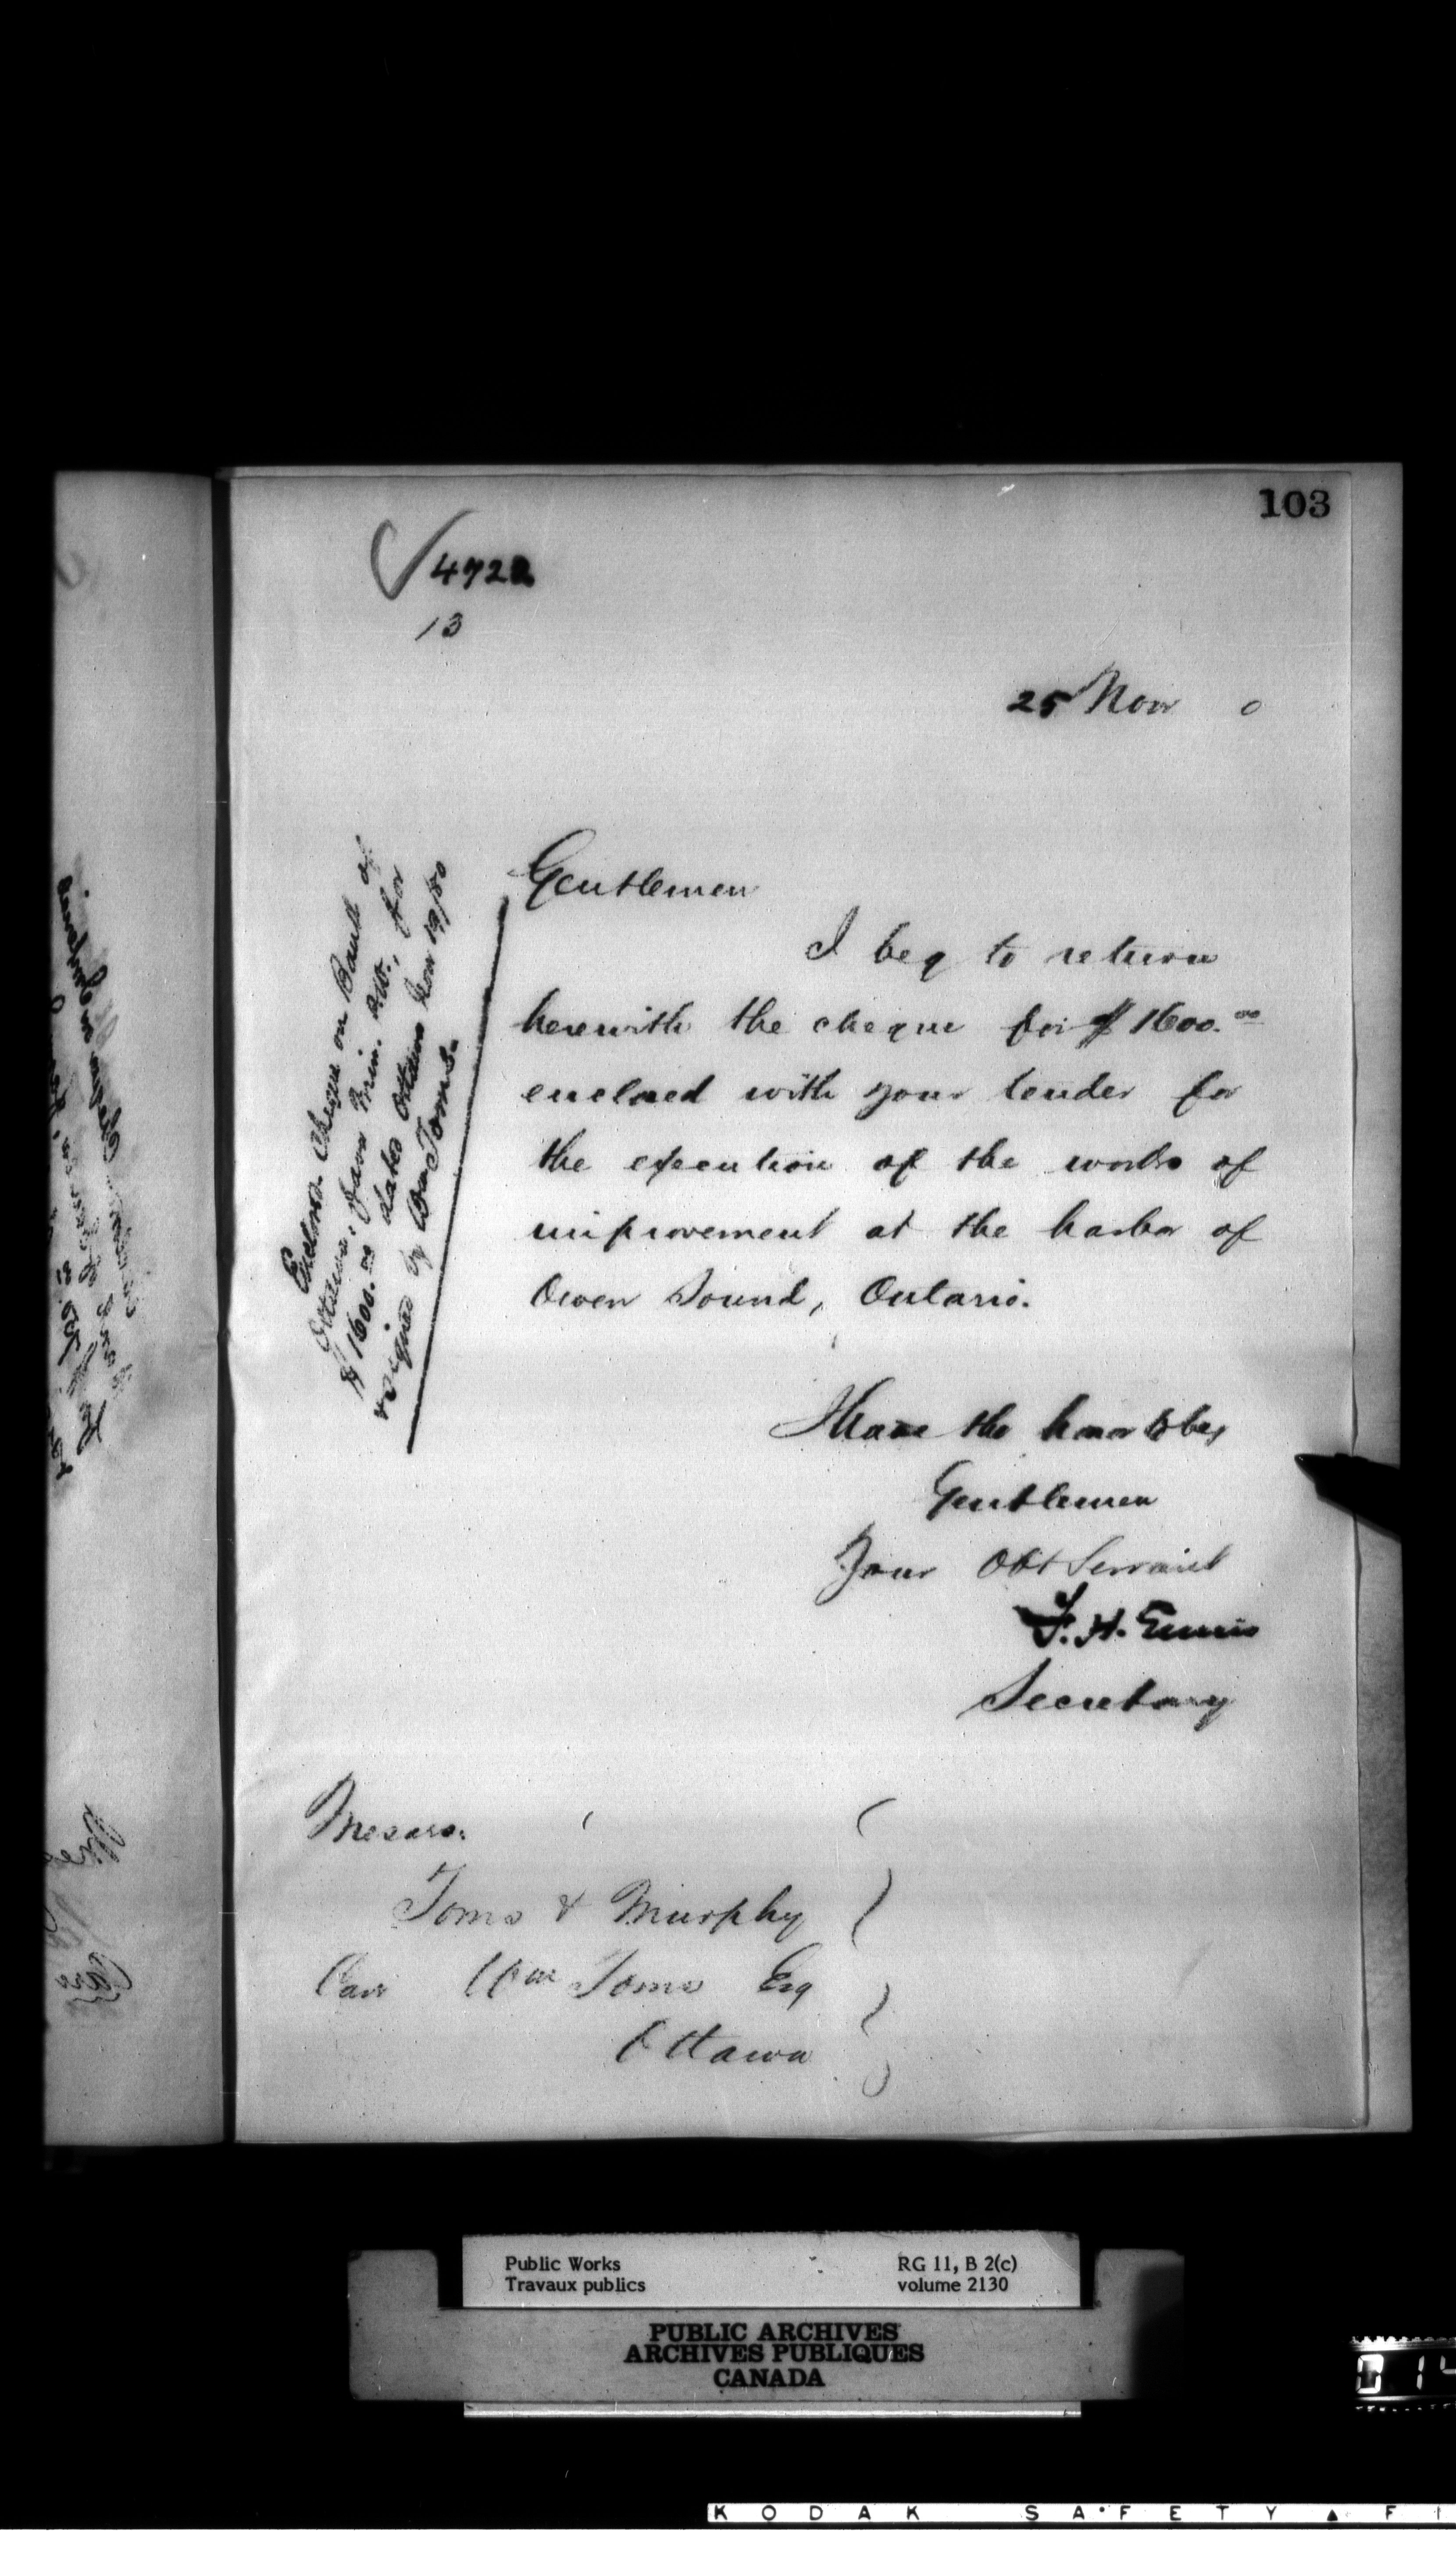 103
4722
13
25 Nov 0
Gentlemen
I beg to return
herewith the cheque for $1600.00
enclosed with your tender for
the execution of the works of
improvement at the harbor of
Owen Sound, Ontario.
I have the honor to be,
Gentlemen
Your Obt Servant
F. H. Ennis
Secretary
Enclose cheque on Bank of
Ottawa, favor Min. P.W., for
$1600.00 dated Ottawa Nov 19/80
& signed by Wm Toms.
Messrs.
Toms & Murphy
Care Wm Toms Esq
Ottawa
Care
Public Works
Travaux publics
RG 11, B 2(c)
volume 2130
PUBLIC ARCHIVES
ARCHIVES PUBLIQUES
CANADA
KODAK SAFETY FI